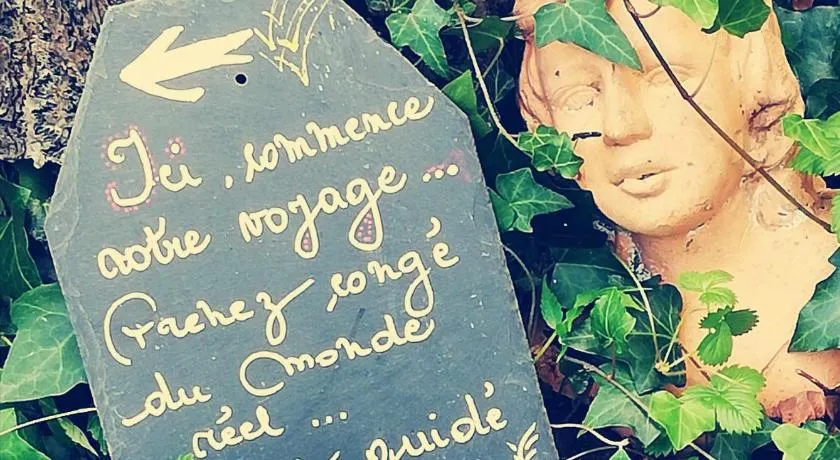 Ici, commence
votre voyage...
Prenez congé
du Monde
réel ...
guidé